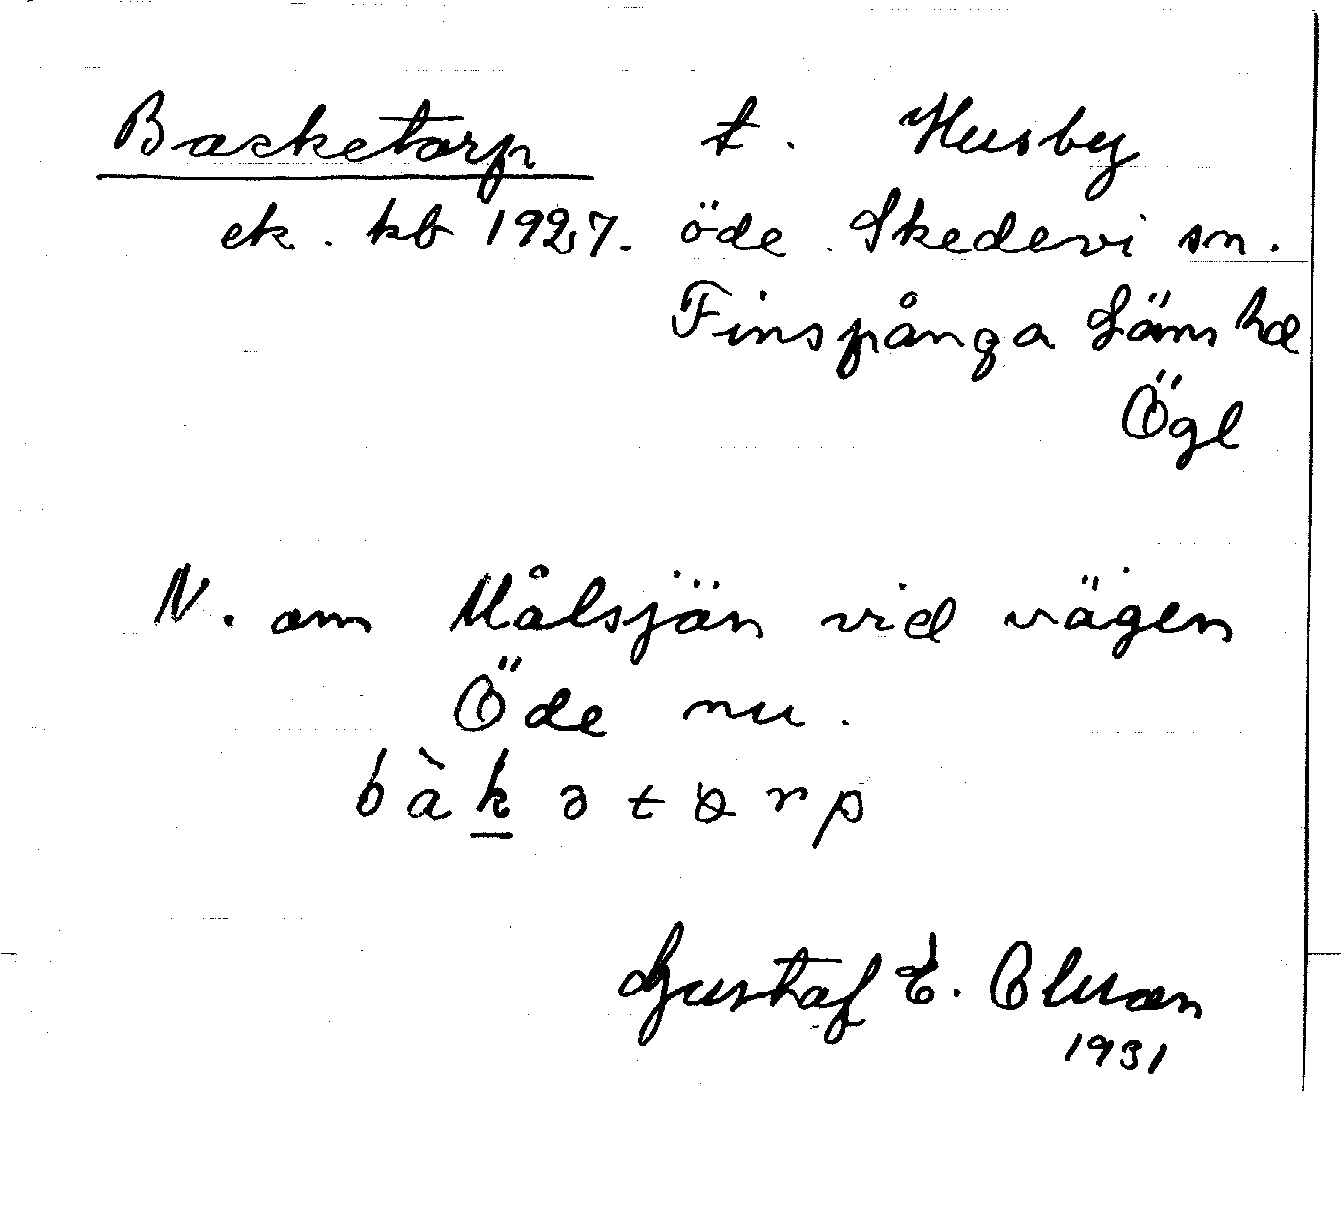 Backetorp t. Husby
ek. kb 1927. öde Skedevi sn.
Finspånga Läns hd
Ögl
N. om Målsjön vid vägen
Öde nu.
bàkətɔrp
Gustaf E. Olsson
1931